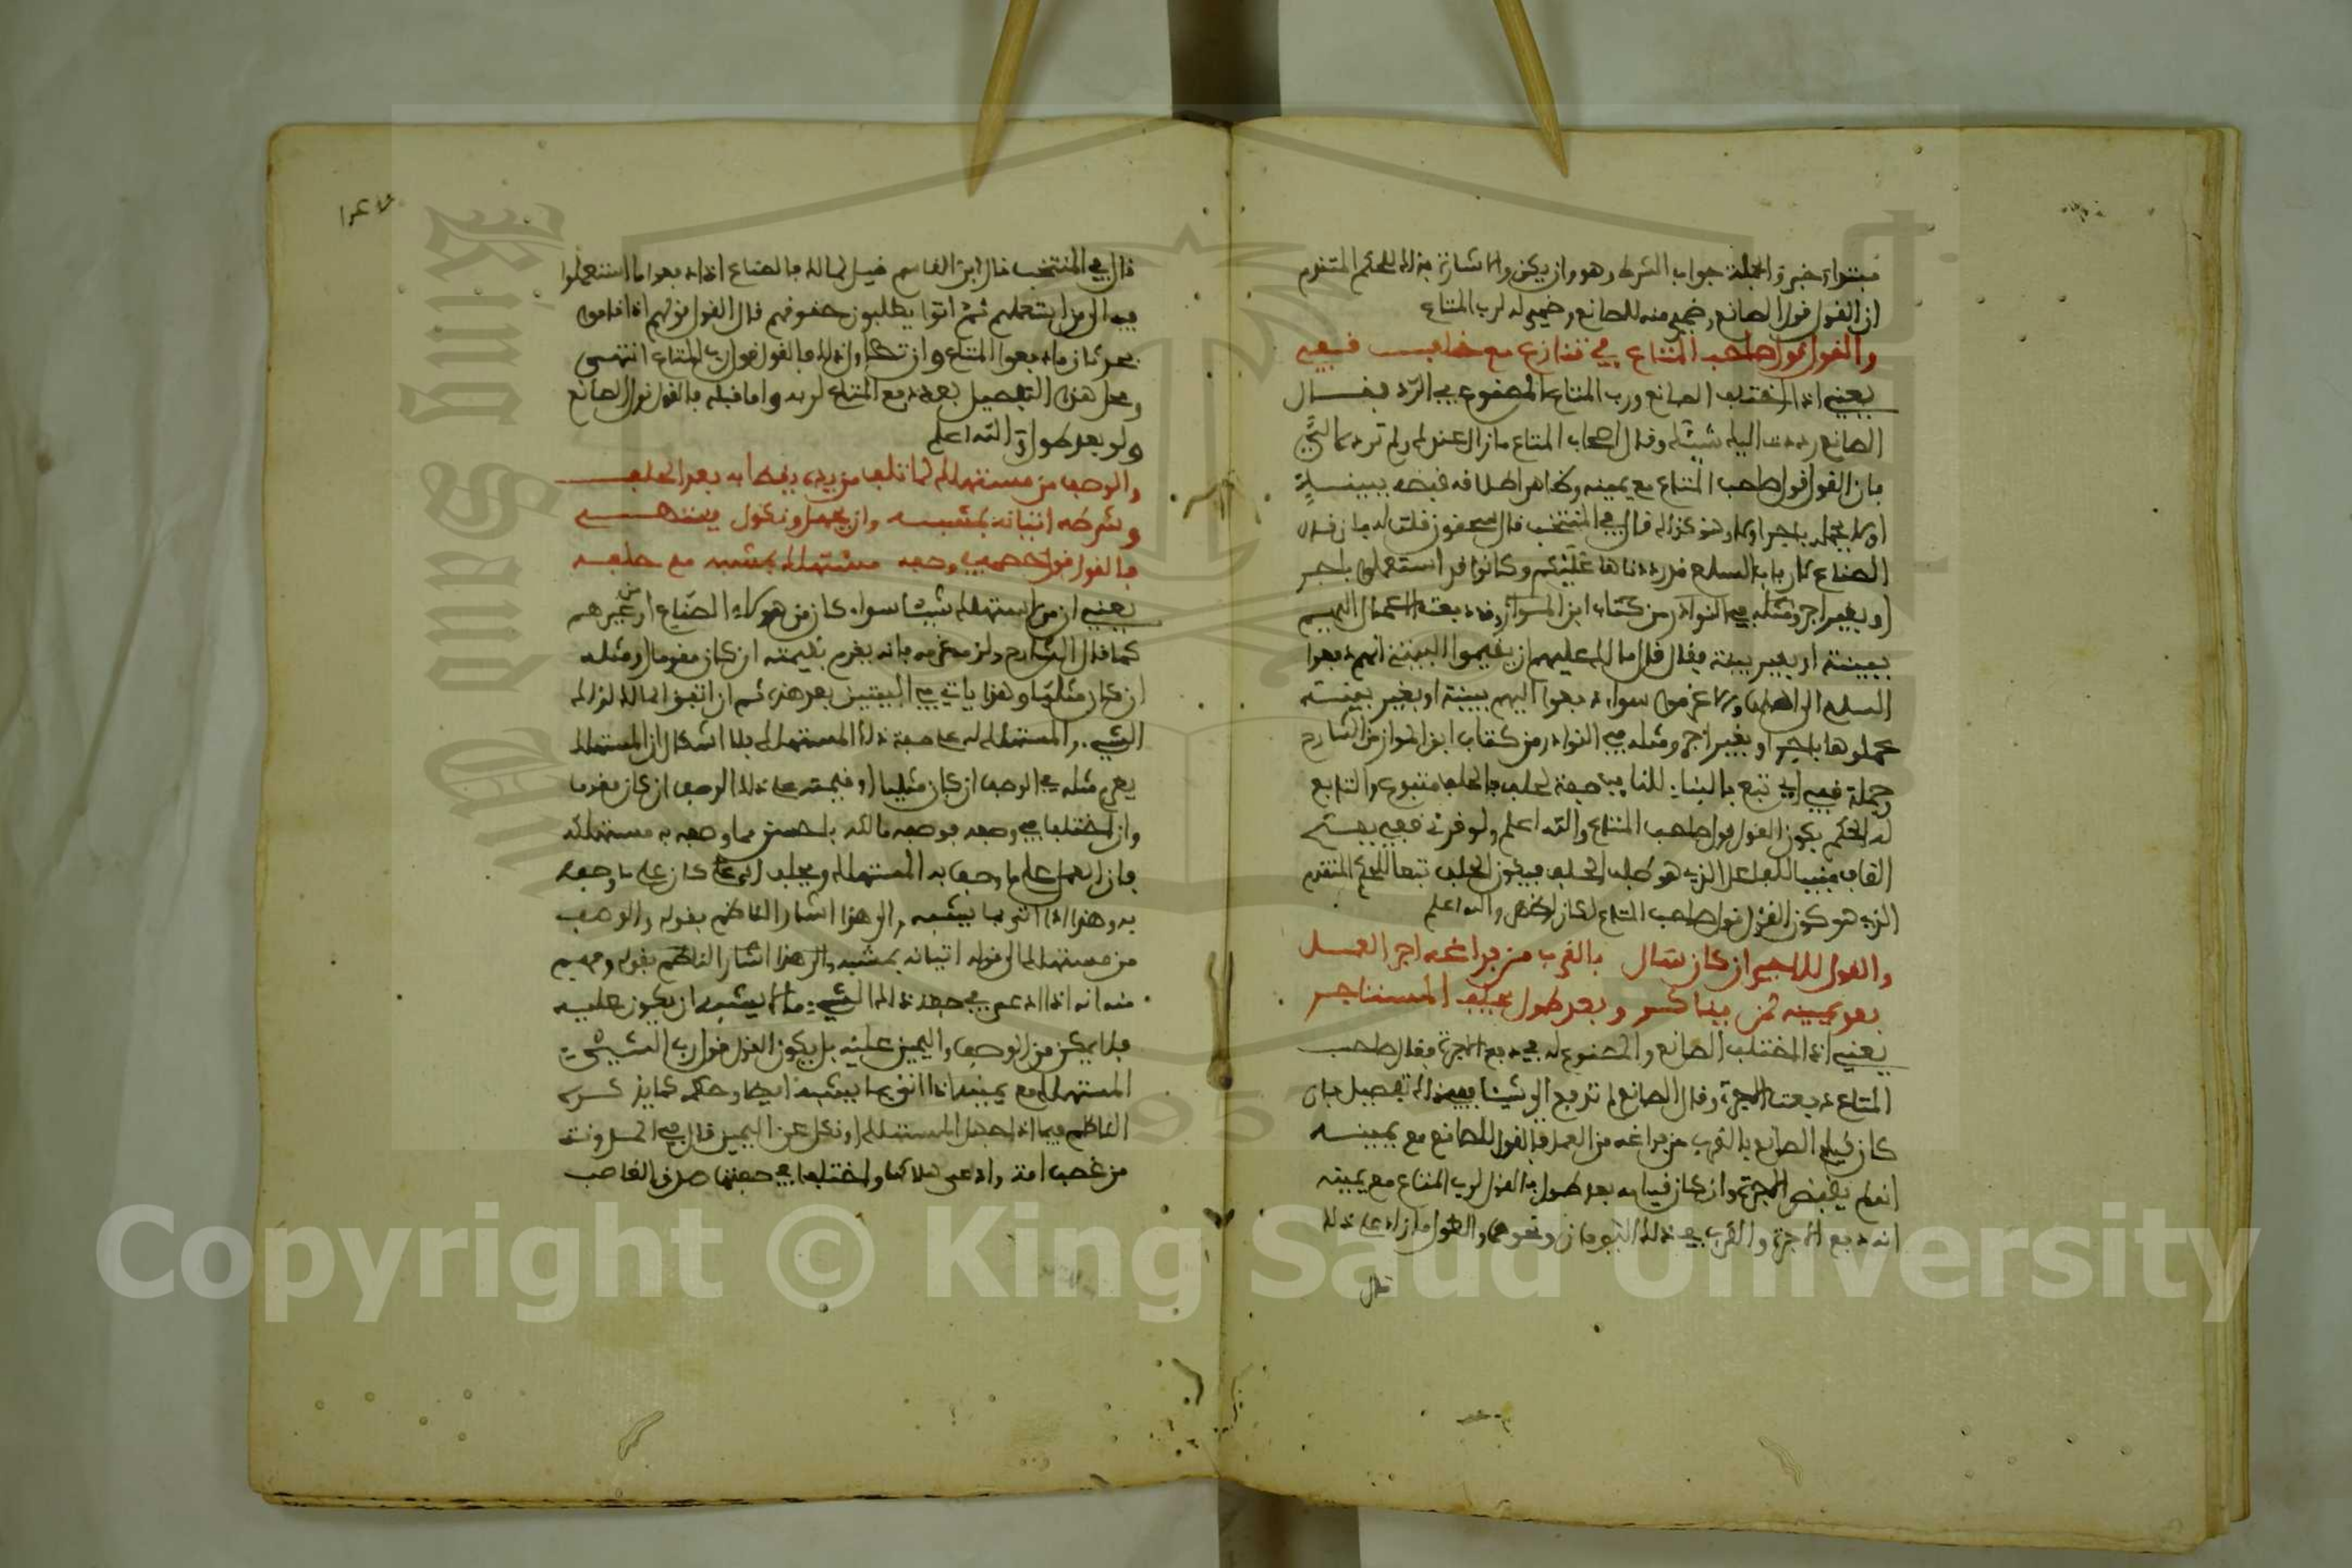 مبتدأ وخبر والجملة جواب الشرط وهو وان يكن والاشارة بذلك للحكم المتقدم
ان القول قول الصانع وضمير منه للصانع وضمير له لرب المتاع
والقول قول صاحب المتاع في تنازع مع حلف قفي
يعني اذا اختلف الصانع ورب المتاع المصنوع في الرد فقال
الصانع رددت اليك شيئك وقال اصحاب المتاع مازال عندك ولم ترده الي
فان القول قول صاحب المتاع مع يمينه وظاهر اطلاقه قبضه ببينة
او لا بعمله باجر او لا وهو كذلك قال في المنتخب قال سحنون قلت له فان قال
الصناع لارباب السلع قد رددناها عليكم وكانوا قد استعملوه باجر
او بغير اجر ومثله في النوادر من كتاب ابن المواز وقد دفعت اليهم
ببينة او بغير بينة فقال قال مالك عليهم ان يقيموا البينة انهم دفعوا
السلع الى اهلها والا غرموا سواء دفعوا اليهم ببينة او بغير بينة
عملوها باجر او بغير اجر ومثله في النوادر من كتاب ابن المواز من الشارح
وجملة قفي اي تبع بالبناء للنائب صفة لحلف فالحلف متبوع والتابع
له الحكم بكون القول قول صاحب المتاع والله اعلم ولو قرئ قفي بفتح
القاف مبنيا للفاعل الذي هو الحلف فيكون الحلف تبعا للحكم المتقدم
الذي هو كون القول قول صاحب المتاع لكان والله اعلم
والقول للاجير ان كان سأل بالقرب من فراغه اجر العمل
بعد يمينه لمن يناكر وبعد طول يحلف المستاجر
يعني اذا اختلف الصانع والمصنوع له في دفع الاجرة فقال صاحب
المتاع دفعت الاجرة وقال الصانع لم تدفع الي شيئا ففي ذلك تفصيل فان
كان قيام الصانع بالقرب من فراغه من العمل فالقول للصانع مع يمينه
انه لم يقبض الاجرة وان كان قيامه بعد طول فالقول لرب المتاع مع يمينه
انه دفع الاجرة والقرب في ذلك اليومان ونحوهما والطول ما زاد على ذلك
قال
قال في المنتخب قال ابن القاسم قيل لمالك فالصناع اذا دفعوا ما استعملوا
فيه الى من استعملهم ثم اتوا يطلبون حقوقهم قال القول قولهم اذا قاموا
بحدثان ما دفعوا المتاع وان تطاول ذلك فالقول قول رب المتاع انتهى
ومحل هذا التفصيل بعد دفع المتاع لربه واما قبله فالقول قول الصانع
ولو بعد طول والله اعلم
والوصف من مستهلك لما تلف من يده يقضى به بعد الحلف
وشرطه اتيانه بمشبه وان بجهل ونكول ينتهي
فالقول قول خصمه في وصفه مستهلكا بمشبه مع حلفه
يعني ان من استهلك شيئا سواء كان من هولاء الصناع او من غيرهم
كما قال الشارح ولزمه غرمه فانه يغرم بقيمته ان كان مقوما او مثله
ان كان مثليا وهذا ياتي في البيتين بعد هذه ثم ان اتفق المالك لذلك
الشيء والمستهلك له على صفة ذلك المستهلك فلا اشكال ان المستهلك
يغرم مثله في الوصف ان كان مثليا او قيمته على ذلك الوصف ان كان مقوما
وان اختلفا في وصفه فوصفه مالكه باحسن مما وصفه به مستهلكه
فان العمل على ما وصف به المستهلك ويحلف انه كان على ما وصفه
به وهذا اذا اتى بما يشبه والى هذا اشار الناظم بقوله والوصف
من مستهلك الى قوله اتيانه بمشبه والى هذا اشار الناظم بقوله وفهم
منه انه اذا ادعى في صفة ذلك الشيء ما لا يشبه ان يكون عليه
فلا يمكن من الوصف واليمين عليه بل يكون القول قول رب الشيء
المستهلك مع يمينه اذا اتى بما يشبه ايضا وحكمه كما يذكره
الناظم فيما اذا جهل المستهلك او نكل عن اليمين قال في المدونة
من غصب امة وادعى هلاكها واختلفا في صفتها صدق الغاصب